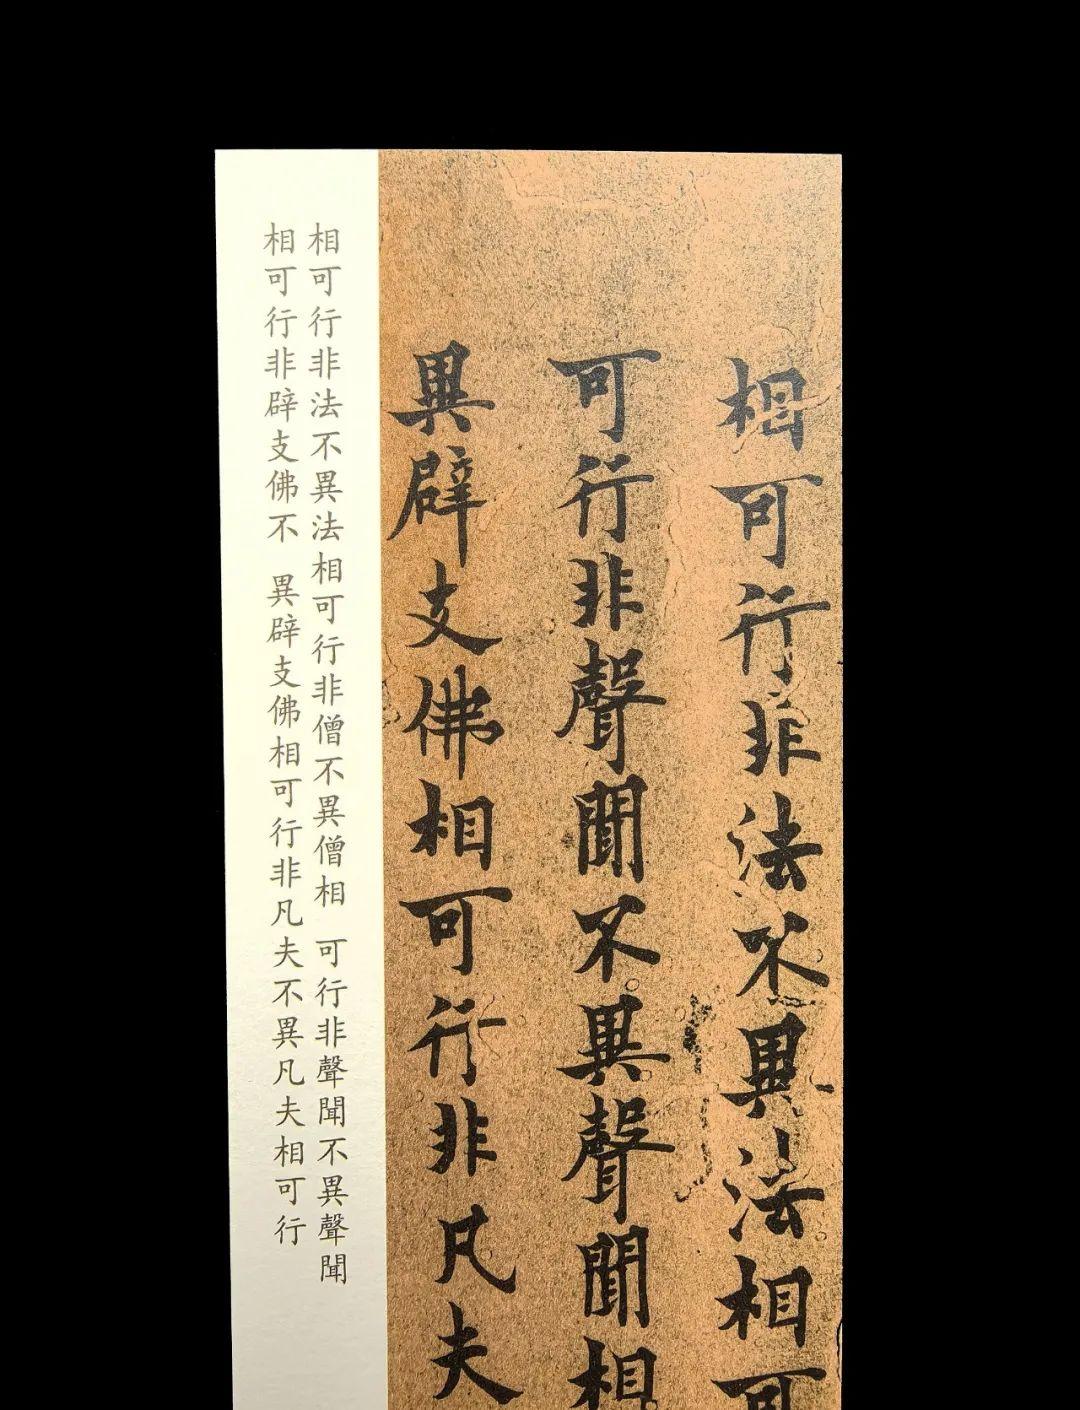 相可行非法不異法相可
可行非聲聞不異聲聞相
異辟支佛相可行非凡夫
相可行非法不異法相可行非僧不異僧相 可行非聲聞不異聲聞
相可行非辟支佛不 異辟支佛相可行非凡夫不異凡夫相可行